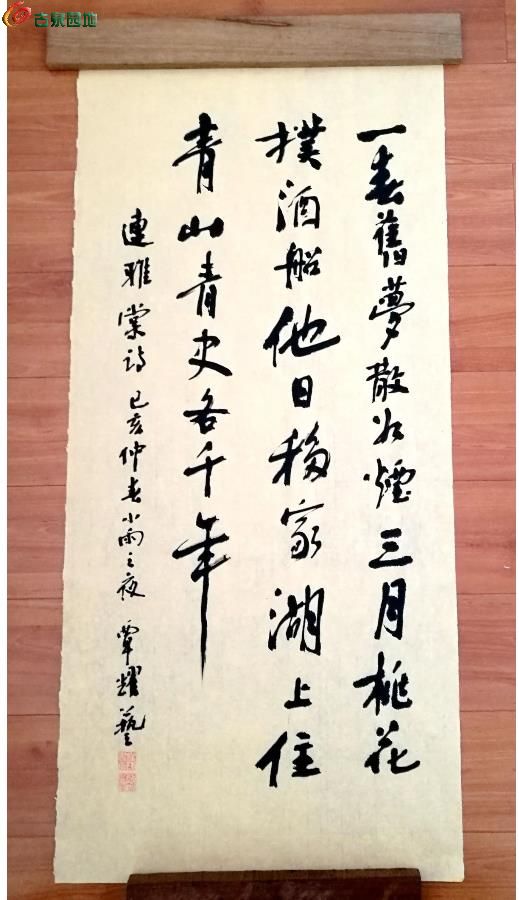 古泉园地
一春舊夢散如煙三月桃花
撲酒船他日移家湖上住
青山青史各千年
連雅棠詩 己亥仲春小雨之夜 覃耀藝